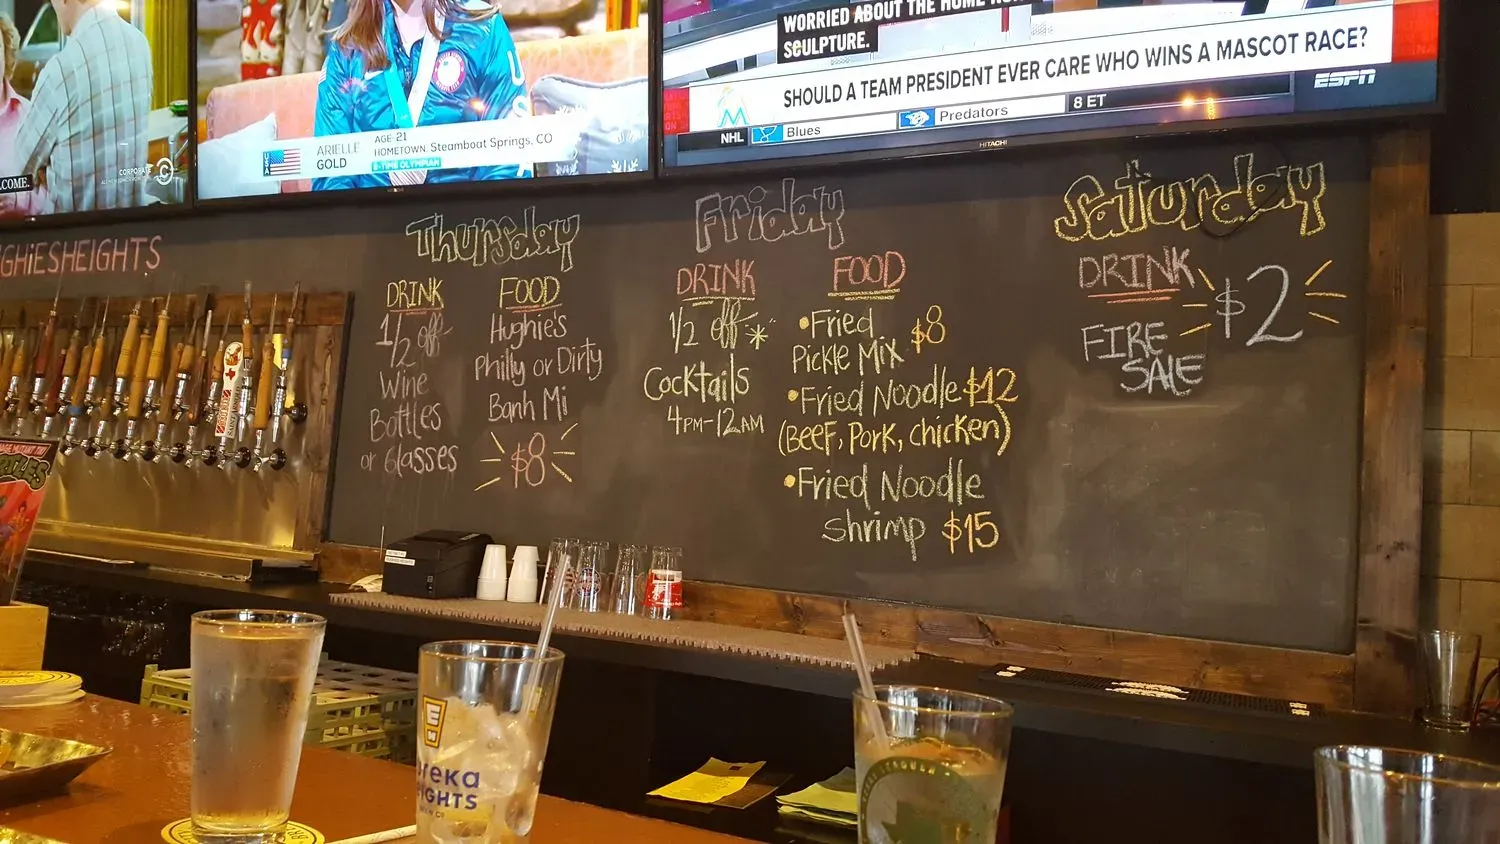 LCOME.
CORPORATE
ARIELLE
GOLD
AGE: 21
HOMETOWN: Steamboat Springs, CO
2-TIME OLYMPIAN
USA
WORRIED ABOUT THE HOME RUN
SCULPTURE.
SHOULD A TEAM PRESIDENT EVER CARE WHO WINS A MASCOT RACE?
ESPN
NHL
Blues
Predators
8 ET
HITACHI
GHIESHEIGHTS
Thursday
DRINK
1/2 off
Wine
Bottles
or Glasses
FOOD
Hughie's
Philly or Dirty
Banh Mi
$8
Friday
DRINK
1/2 off *
Cocktails
4PM-12AM
FOOD
•Fried $8
Pickle Mix
•Fried Noodle $12
(Beef, Pork, chicken)
•Fried Noodle
shrimp $15
Saturday
DRINK
$2
FIRE
SALE
EUREKA
HEIGHTS